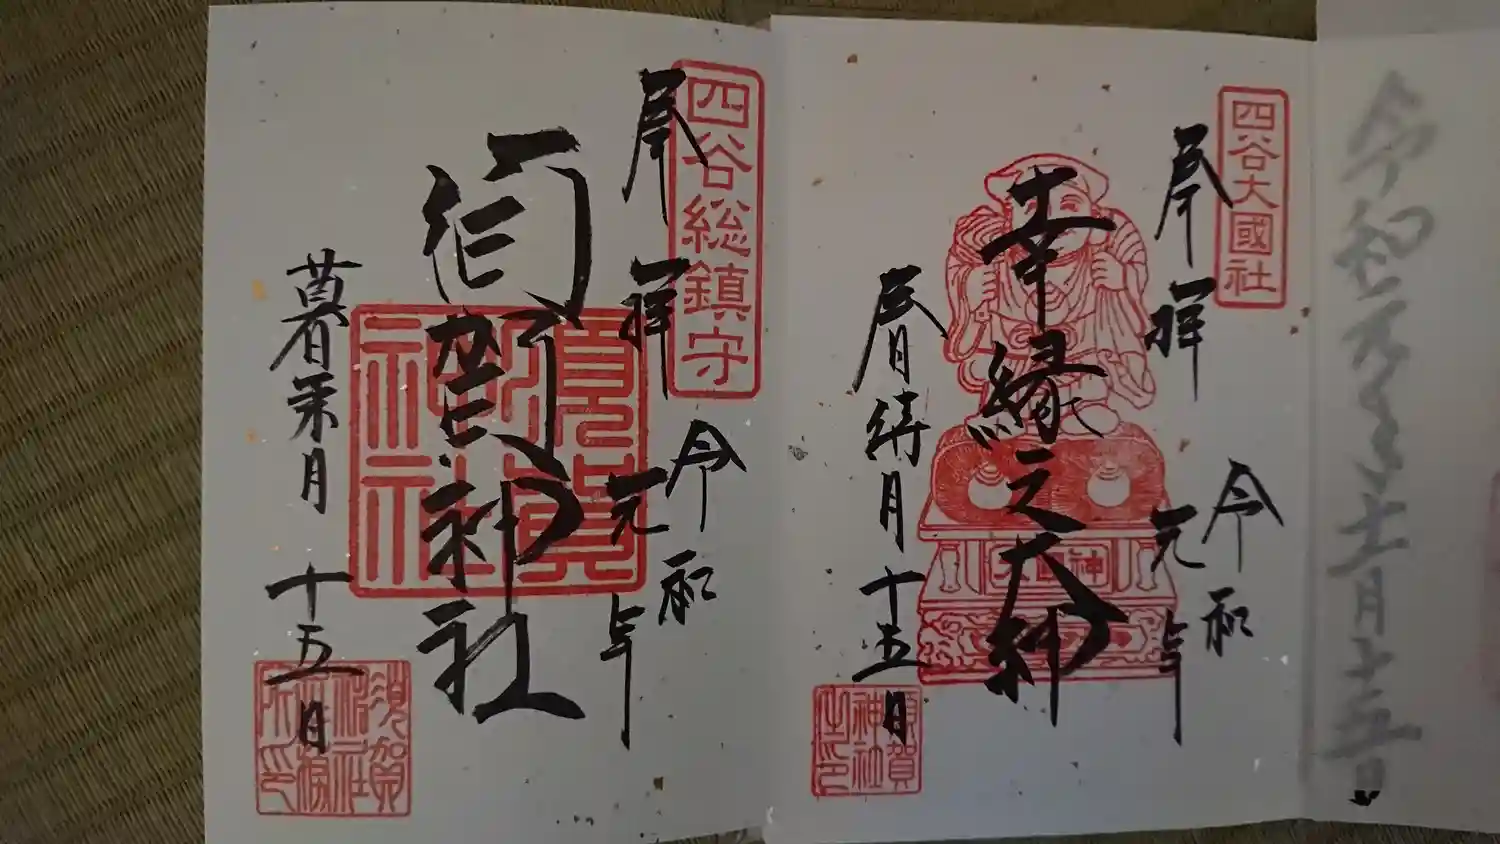 四谷総鎮守
奉拝
令和
元年
須賀神社
須賀神社
暮来月
十五日
須賀神社
四谷大國社
奉拝
令和
元年
幸縁之大神
春待月
十五日
須賀神社之印
令和元年十二月十五日